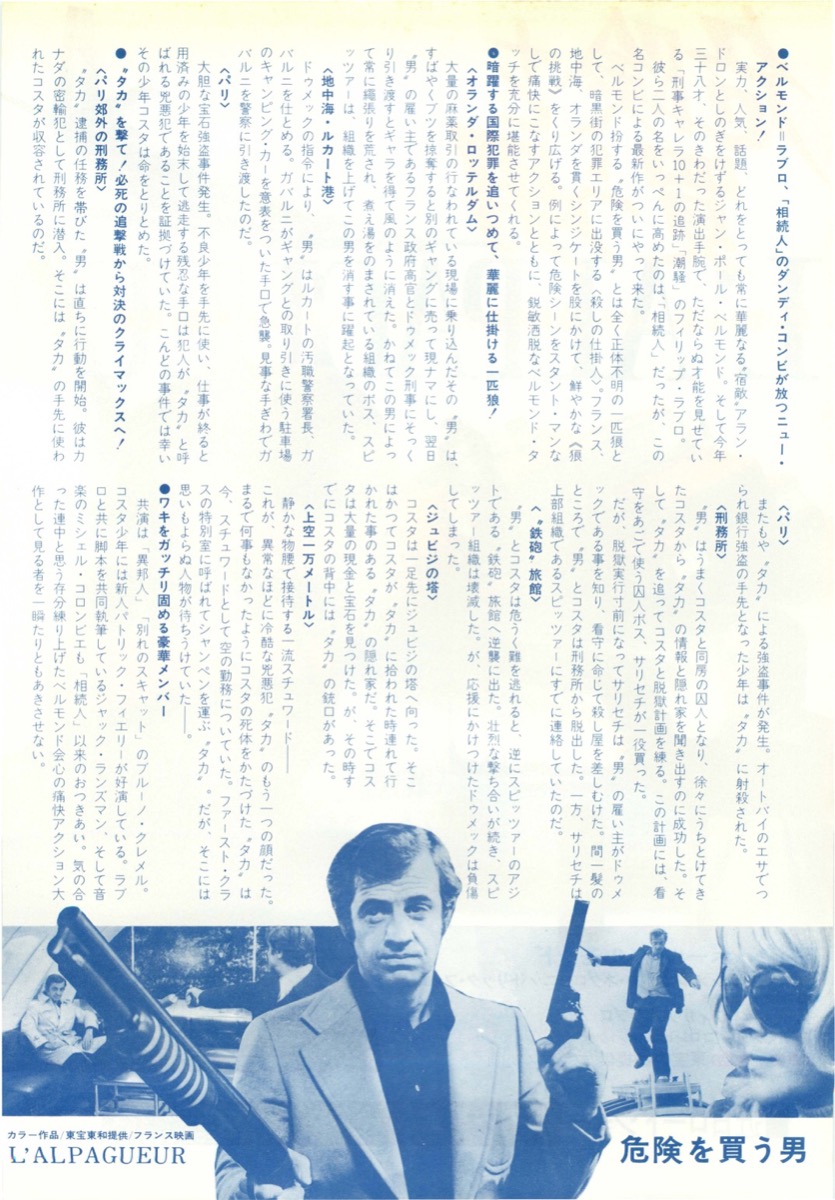 ●ベルモンド＝ラブロ、「相続人」のダンディ・コンビが放つニュー・
アクション！
実力、人気、話題、どれをとっても常に華麗なる〝宿敵〟アラン・
ドロンとしのぎをけずるジャン・ポール・ベルモンド。そして今年
三十八才、そのきわだった演出手腕で、ただならぬ才能を見せてい
る「刑事キャレラ10+1の追跡」「潮騒」のフィリップ・ラブロ。
彼ら二人の名をいっぺんに高めたのは「相続人」だったが、この
名コンビによる最新作がついにやって来た。
ベルモンド扮する〝危険を買う男〟とは全く正体不明の一匹狼と
して、暗黒街の犯罪エリアに出没する〈殺しの仕掛人〉。フランス、
地中海、オランダを貫くシンジケートを股にかけて、鮮やかな《狼
の挑戦》をくり広げる。例によって危険シーンをスタント・マンな
しで痛快にこなすアクションとともに、鋭敏洒脱なベルモンド・タ
ッチを充分に堪能させてくれる。
●暗躍する国際犯罪を追いつめて、華麗に仕掛ける一匹狼！
〈オランダ・ロッテルダム〉
大量の麻薬取引の行なわれている現場に乗り込んだその〝男〟は、
すばやくブツを掠奪すると別のギャングに売って現ナマにし、翌日
〝男〟の雇い主であるフランス政府高官とドゥメック刑事にそっく
り引き渡すとギャラを得て風のように消えた。かねてこの男によっ
て常に縄張りを荒され、煮え湯をのまされている組織のボス、スピ
ッツアーは、組織を上げてこの男を消す事に躍起となっていた。
〈地中海・ルカート港〉
ドゥメックの指令により、〝男〟はルカートの汚職警察署長、ガ
バルニを仕とめる。ガバルニがギャングとの取り引きに使う駐車場
のキャンピング・カーを意表をついた手口で急襲。見事な手ぎわでガ
バルニを警察に引き渡したのだ。
〈パリ〉
大胆な宝石強盗事件発生。不良少年を手先に使い、仕事が終ると
用済みの少年を始末して逃走する残忍な手口は犯人が〝タカ〟と呼
ばれる兇悪犯であることを証拠づけていた。こんどの事件では幸い
その少年コスタは命をとりとめた。
●〝タカ〟を撃て！必死の追撃戦から対決のクライマックスへ！
〈パリ郊外の刑務所〉
〝タカ〟逮捕の任務を帯びた〝男〟は直ちに行動を開始。彼はカ
ナダの密輸犯として刑務所に潜入。そこには〝タカ〟の手先に使わ
れたコスタが収容されているのだ。
〈パリ〉
またもや〝タカ〟による強盗事件が発生。オートバイのエサでつ
られ銀行強盗の手先となった少年は〝タカ〟に射殺された。
〈刑務所〉
〝男〟はうまくコスタと同房の囚人となり、徐々にうちとけてき
たコスタから〝タカ〟の情報と隠れ家を聞き出すのに成功した。そ
して〝タカ〟を追ってコスタと脱獄計画を練る。この計画には、看
守をあごで使う囚人ボス、サリセチが一役買った。
だが、脱獄実行寸前になってサリセチは〝男〟の雇い主がドゥメ
ックである事を知り、看守に命じて殺し屋を差しむけた。間一髪の
ところで〝男〟とコスタは刑務所から脱出した。一方、サリセチは
上部組織であるスピッツアーにすでに連絡していたのだ。
〈〝鉄砲〟旅館〉
〝男〟とコスタは危うく難を逃れると、逆にスピッツアーのアジ
トである〝鉄砲〟旅館へ逆襲に出た。壮烈な撃ち合いが続き、スピ
ッツアー組織は壊滅した。が、応援にかけつけたドゥメックは負傷
してしまった。
〈ジュビジの塔〉
コスタは一足先にジュビジの塔へ向った。そこ
はかつてコスタが〝タカ〟に拾われた時連れて行
かれた事のある〝タカ〟の隠れ家だ。そこでコス
タは大量の現金と宝石を見つけた。が、その時す
でにコスタの背中には〝タカ〟の銃口があった。
〈上空一万メートル〉
静かな物腰で接待する一流スチュワード――
これが、異常なほどに冷酷な兇悪犯〝タカ〟のもう一つの顔だった。
まるで何事もなかったようにコスタの死体をかたづけた〝タカ〟は
今、スチュワードとして空の勤務についていた。ファースト・クラ
スの特別室に呼ばれてシャンペンを運ぶ〝タカ〟。だが、そこには
思いもよらぬ人物が待ちうけていた――。
●ワキをガッチリ固める豪華メンバー
共演は「異邦人」「別れのスキャット」のブルーノ・クレメル。
コスタ少年には新人パトリック・フィエリーが好演している。ラブ
ロと共に脚本を共同執筆しているジャック・ランズマン、そして音
楽のミシェル・コロンビエも「相続人」以来のおつきあい。気の合
った連中と思う存分練り上げたベルモンド会心の痛快アクション大
作として見る者を一瞬たりともあきさせない。
カラー作品/東宝東和提供/フランス映画
L'ALPAGUEUR
危険を買う男